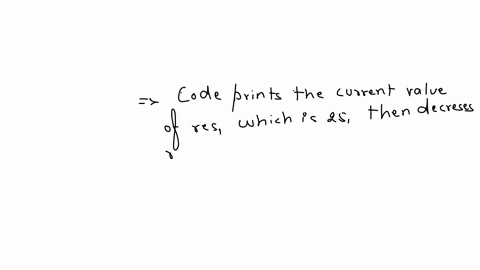 => Code prints the current value
of res, which is 25, then decreses
r